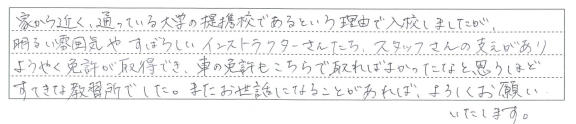 家から近く、通っている大学の提携校であるという理由で入校しましたが、
明るい雰囲気やすばらしいインストラクターさんたち、スタッフさんの支えがあり
ようやく免許が取得でき、車の免許もこちらで取ればよかったなと思うほど
すてきな教習所でした。またお世話になることがあれば、よろしくお願い
いたします。